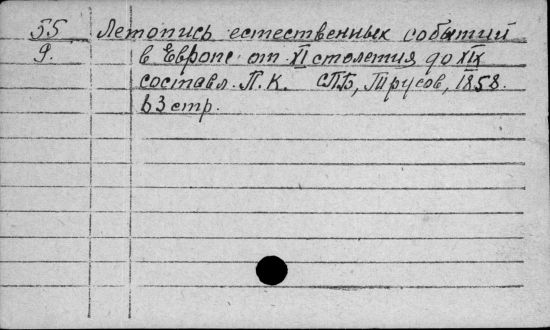 55 Летопись естественных событий
9. в Европе от XI столетия до XIX
составл. П. К. СПБ, Трусов, 1858.
63 стр.